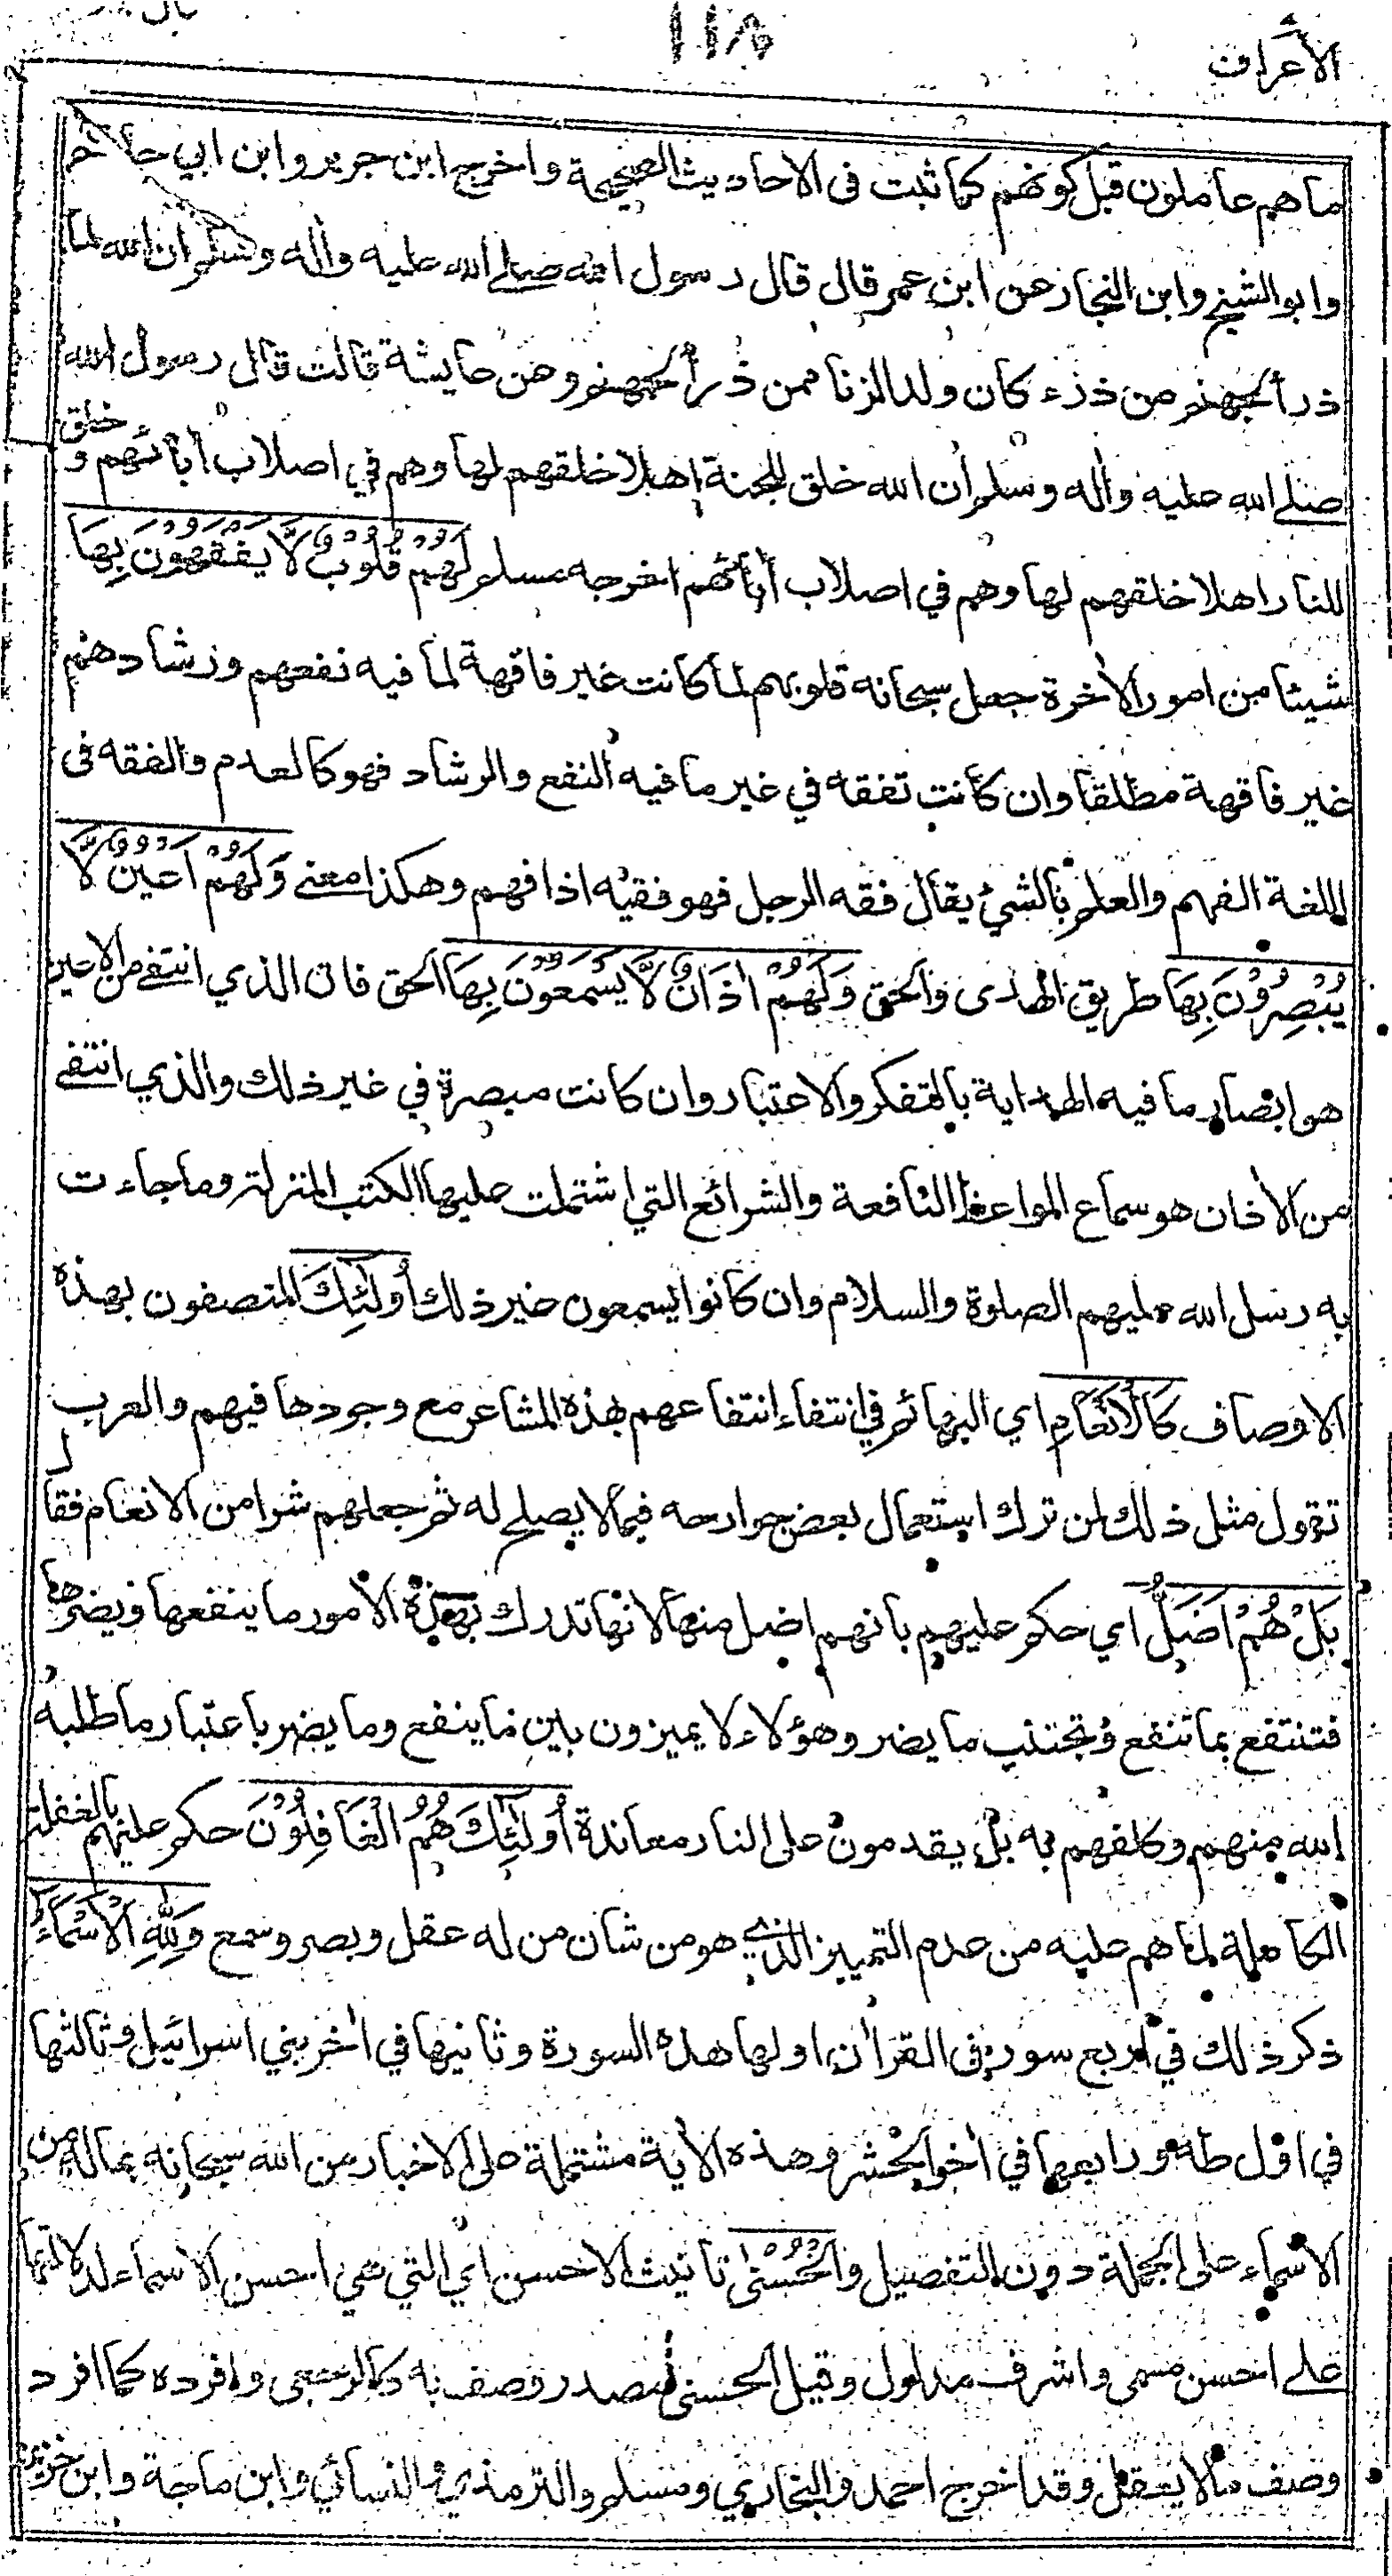 الأعراف
١١٨
ما هم عاملون قبل كونهم كما ثبت في الاحاديث الصحيحة واخرج ابن جرير وابن ابي حاتم
وابو الشيخ وابن النجار عن ابن عمر قال قال رسول الله صلى الله عليه وآله وسلم ان الله لما
ذرأ لجهنم من ذرء كان ولد الزنا ممن ذرأ لجهنم وعن عايشة قالت قال رسول الله
صلى الله عليه وآله وسلم أن الله خلق للجنة اهلا خلقهم لها وهم في اصلاب أبائهم و خلق
للنار اهلا خلقهم لها وهم في اصلاب أبائهم اخرجه مسلم لَهُمْ قُلُوْبٌ لَّا يَفْقَهُوْنَ بِهَا
شيئا من امور الآخرة جعل سبحانه قلوبهم لما كانت غير فاقهة لما فيه نفعهم ورشادهم
غير فاقهة مطلقا وان كانت تفقه في غير ما فيه النفع والرشاد فهو كالعدم والفقه في
اللغة الفهم والعلم بالشيء يقال فقه الرجل فهو فقيه اذا فهم وهكذا معنى وَلَهُمْ اَعْيُنٌ لَّا
يُبْصِرُوْنَ بِهَا طريق الهدى والحق وَلَهُمْ اٰذَانٌ لَّا يَسْمَعُوْنَ بِهَا الحق فان الذي انتفى من الاعين
هو ابصار ما فيه الهداية بالتفكر والاعتبار وان كانت مبصرة في غير ذلك والذي انتفى
من الآذان هو سماع المواعظ النافعة والشرائع التي اشتملت عليها الكتب المنزلة وما جاءت
به رسل الله عليهم الصلوة والسلام وان كانوا يسمعون غير ذلك أُولٰئِكَ المتصفون بهذه
الاوصاف كَالْاَنْعَامِ اي البهائم في انتفاء انتفاعهم بهذه المشاعر مع وجودها فيهم والعرب
تقول مثل ذلك لمن ترك استعمال بعض جوارحه فيما لا يصلح له ثم جعلهم شرا من الانعام فقال
بَلْ هُمْ اَضَلُّ اي حكم عليهم بانهم اضل منها لانها تدرك بهذه الامور ما ينفعها ويضرها
فتنتفع بما تنفع وتجتنب ما يضر وهؤلاء لا يميزون بين ما ينفع وما يضر باعتبار ما طلبه
الله منهم وكلفهم به بل يقدمون على النار معاندة أُولٰئِكَ هُمُ الْغَافِلُوْنَ حكم عليهم بالغفلة
الكاملة لما هم عليه من عدم التمييز الذي هو من شان من له عقل وبصر وسمع وَلِلّٰهِ الْاَسْمَآءُ
ذكر ذلك في اربع سور في القرآن اولها هذه السورة وثانيها في آخر بني اسرائيل وثالثها
في اول طه ورابعها في آخر الحشر وهذه الآية مشتملة على الاخبار من الله سبحانه بماله من
الاسماء على الجملة دون التفصيل والْحُسْنٰى تأنيث الاحسن اي التي هي احسن الاسماء لدلالتها
على احسن مسمى واشرف مدلول وقيل الحسنى مصدر وصف به كالرجعى وافرده كما افرد
وصف ما لا يعقل وقد اخرج احمد والبخاري ومسلم والترمذي والنسائي وابن ماجة وابن خزيمة